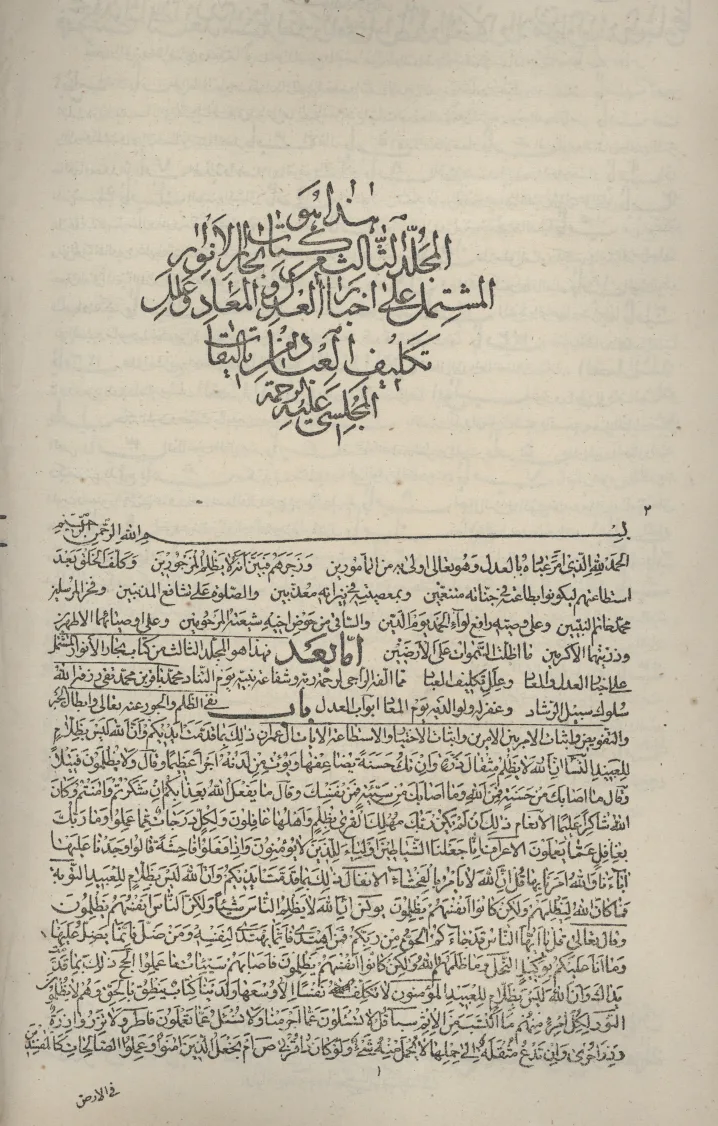 هذا هو
المجلد الثالث من كتاب بحار الانوار
المشتمل على اخبار العدل و المعاد و علل
تكليف العباد
المجلسي عليه الرحمة
٢
بسم الله الرحمن الرحيم
الحمد لله الذي امر عباده بالعدل وهو تعالى اولى به من المأمورين وزجرهم فبين انه لا يظلم المزجورين وكلف الخلق بعد
استطاعتهم ليكونوا بطاعته في جنانه متنعمين وبمعصيته في نيرانه معذبين والصلوة على شافع المذنبين وفخر المرسلين
محمد خاتم النبيين وعلى وصيه رافع لواء الحمد يوم الدين والساقي من حوض اخيه شيعته المرحومين وعلى اوصيائهما الاطهرين
وذريتهما الاكرمين ما اظلت السموات على الارضين اما بعد فهذا هو المجلد الثالث من كتاب بحار الأنوار المشتمل
على اخبار العدل والمعاد وعلل تكليف العباد مما الفه الراجي لرحمة ربه وشفاعة نبيه يوم التناد محمد باقر بن محمد تقي رزقه الله
سلوك سبيل الرشاد وغفر له ولوالديه يوم المعاد ابواب العدل باب نفي الظلم والجور عنه تعالى وابطال الجبر
والتفويض واثبات الامر بين الامرين واثبات الاختيار والاستطاعة الايات ال عمران ذلك بما قدمت ايديكم وأن الله ليس بظلام
للعبيد النساء ان الله لا يظلم مثقال ذرة وان تك حسنة يضاعفها ويؤت من لدنه اجرا عظيما وقال ولا يظلمون فتيلا
وقال ما اصابك من حسنة فمن الله وما اصابك من سيئة فمن نفسك وقال ما يفعل الله بعذابكم ان شكرتم وامنتم وكان
الله شاكرا عليما الانعام ذلك ان لم يكن ربك مهلك القرى بظلم واهلها غافلون ولكل درجات مما عملوا وما ربك
بغافل عما يعملون الاعراف انا جعلنا الشياطين اولياء للذين لا يؤمنون واذا فعلوا فاحشة قالوا وجدنا عليها
آباءنا والله امرنا بها قل ان الله لا يأمر بالفحشاء الانفال ذلك بما قدمت ايديكم وان الله ليس بظلام للعبيد التوبة
فما كان الله ليظلمهم ولكن كانوا انفسهم يظلمون يونس ان الله لا يظلم الناس شيئا ولكن الناس انفسهم يظلمون
وقال تعالى قل يا ايها الناس قد جاءكم الحق من ربكم فمن اهتدى فانما يهتدي لنفسه ومن ضل فانما يضل عليها
وما انا عليكم بوكيل النحل وما ظلمهم الله ولكن كانوا انفسهم يظلمون فاصابهم سيئات ما عملوا الحج ذلك بما قدمت
يداك وان الله ليس بظلام للعبيد المؤمنون لا نكلف نفسا الا وسعها ولدينا كتاب ينطق بالحق وهم لا يظلمون
النور لكل امرئ منهم ما اكتسب من الاثم سبا قل لا تسئلون عما اجرمنا ولا نسئل عما تعملون فاطر ولا تزر وازرة
وزر اخرى وان تدع مثقلة الى حملها لا يحمل منه شيء ولو كان ذا قربى ص ام نجعل الذين امنوا وعملوا الصالحات كالمفسدين
في الارض